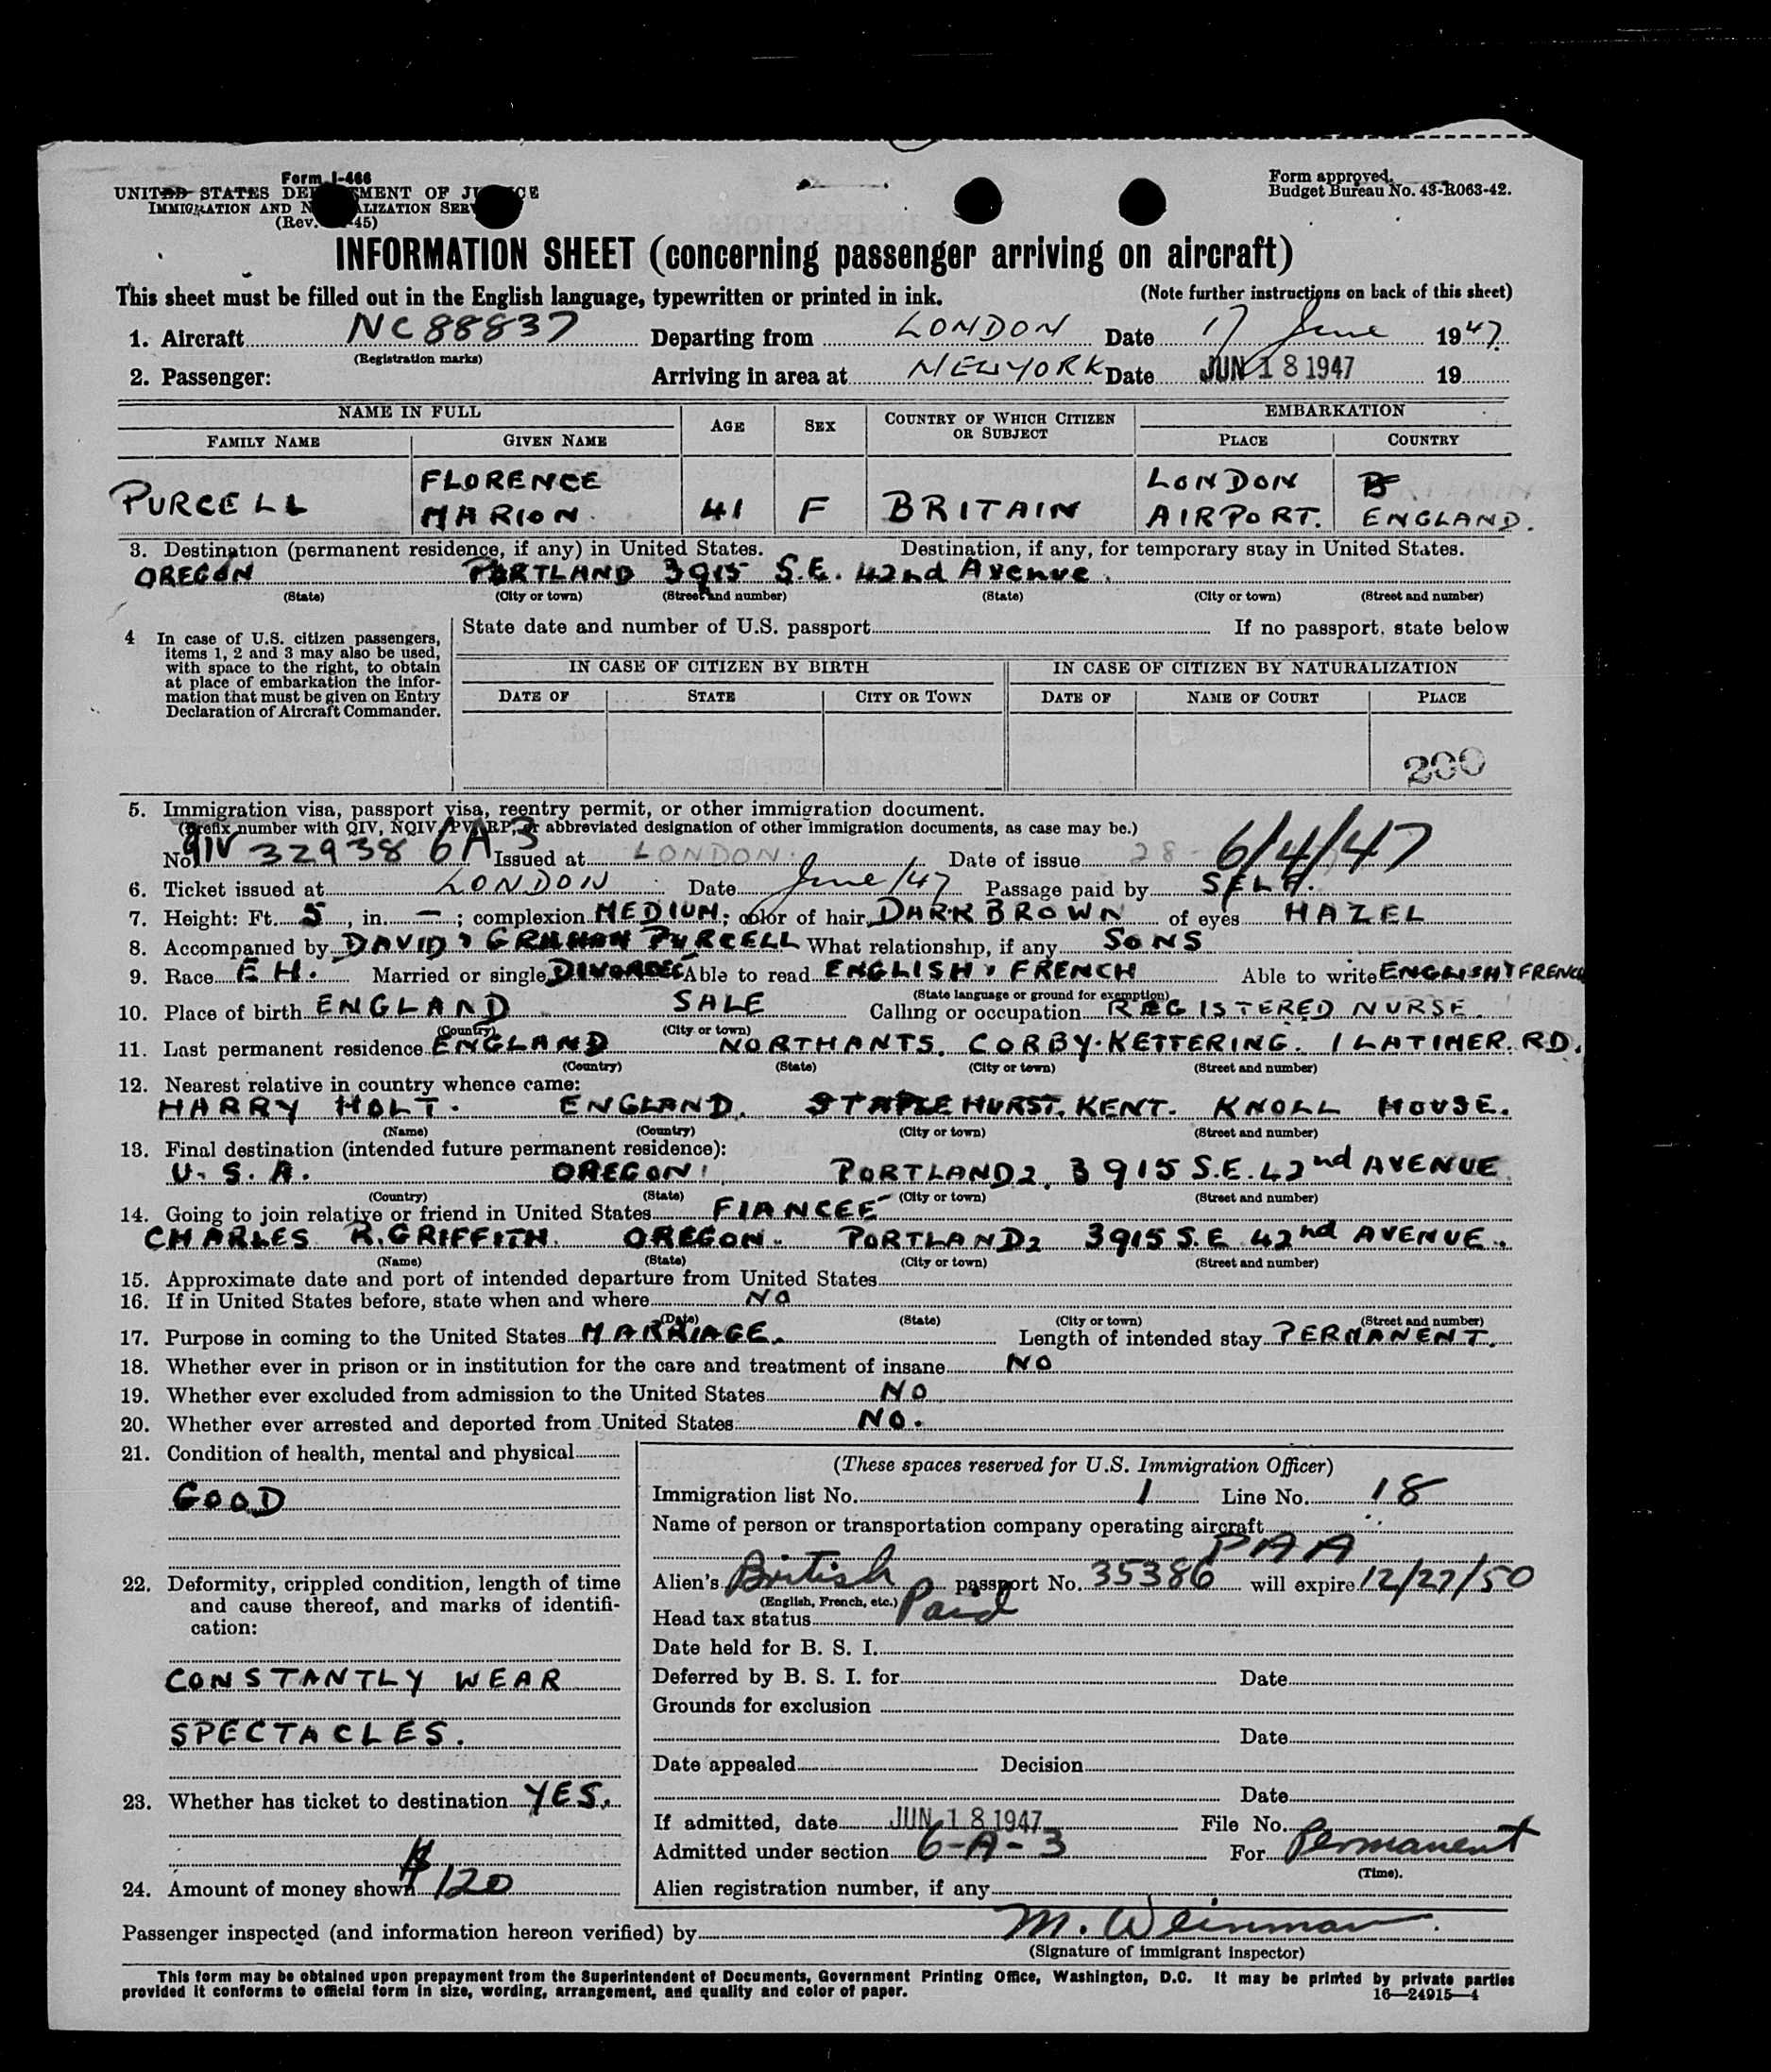 Form I-466
UNITED STATES DEPARTMENT OF JUSTICE
IMMIGRATION AND NATURALIZATION SERVICE
(Rev. 45)
Form approved.
Budget Bureau No. 43-R063-42.
INFORMATION SHEET (concerning passenger arriving on aircraft)
This sheet must be filled out in the English language, typewritten or printed in ink. (Note further instructions on back of this sheet)
1. Aircraft NC 88837 Departing from LONDON Date 17 June 1947.
(Registration marks)
2. Passenger: Arriving in area at NEW YORK Date JUN 18 1947 19
NAME IN FULL AGE SEX COUNTRY OF WHICH CITIZEN OR SUBJECT EMBARKATION
FAMILY NAME GIVEN NAME PLACE COUNTRY
PURCELL FLORENCE MARION. 41 F BRITAIN LONDON AIRPORT. ENGLAND.
3. Destination (permanent residence, if any) in United States. Destination, if any, for temporary stay in United States.
OREGON PORTLAND 3915 S.E. 42nd Avenue.
(State) (City or town) (Street and number) (State) (City or town) (Street and number)
4 In case of U.S. citizen passengers, items 1, 2 and 3 may also be used, with space to the right, to obtain at place of embarkation the information that must be given on Entry Declaration of Aircraft Commander.
State date and number of U.S. passport If no passport, state below
IN CASE OF CITIZEN BY BIRTH IN CASE OF CITIZEN BY NATURALIZATION
DATE OF STATE CITY OR TOWN DATE OF NAME OF COURT PLACE
200
5. Immigration visa, passport visa, reentry permit, or other immigration document.
(Prefix number with QIV, NQIV, PV, RP, or abbreviated designation of other immigration documents, as case may be.)
No. QIV 32938 6A3 Issued at LONDON. Date of issue 28 6/4/47
6. Ticket issued at LONDON Date June/47 Passage paid by SELF.
7. Height: Ft. 5, in. —; complexion MEDIUM; color of hair DARK BROWN of eyes HAZEL
8. Accompanied by DAVID & GRAHAM PURCELL What relationship, if any SONS
9. Race E.H. Married or single DIVORCEE Able to read ENGLISH & FRENCH Able to write ENGLISH & FRENCH
(State language or ground for exemption)
10. Place of birth ENGLAND SALE Calling or occupation REGISTERED NURSE.
(Country) (City or town)
11. Last permanent residence ENGLAND NORTHANTS. CORBY. KETTERING. 1 LATIMER. RD.
(Country) (State) (City or town) (Street and number)
12. Nearest relative in country whence came:
HARRY HOLT. ENGLAND. STAPLEHURST. KENT. KNOLL HOUSE.
(Name) (Country) (City or town) (Street and number)
13. Final destination (intended future permanent residence):
U.S.A. OREGON PORTLAND 2. 3915 S.E. 42nd AVENUE.
(Country) (State) (City or town) (Street and number)
14. Going to join relative or friend in United States FIANCEE
CHARLES R. GRIFFITH. OREGON. PORTLAND 2 3915 S.E 42nd AVENUE.
(Name) (State) (City or town) (Street and number)
15. Approximate date and port of intended departure from United States
16. If in United States before, state when and where NO
(Date) (State) (City or town) (Street and number)
17. Purpose in coming to the United States MARRIAGE. Length of intended stay PERMANENT.
18. Whether ever in prison or in institution for the care and treatment of insane NO
19. Whether ever excluded from admission to the United States NO
20. Whether ever arrested and deported from United States NO.
21. Condition of health, mental and physical
GOOD
22. Deformity, crippled condition, length of time and cause thereof, and marks of identification:
CONSTANTLY WEAR
SPECTACLES.
23. Whether has ticket to destination YES.
24. Amount of money shown $120
(These spaces reserved for U.S. Immigration Officer)
Immigration list No. 1 Line No. 18
Name of person or transportation company operating aircraft
PAA
Alien's British passport No. 35386 will expire 12/27/50
(English, French, etc.)
Head tax status Paid
Date held for B. S. I.
Deferred by B. S. I. for Date
Grounds for exclusion
Date
Date appealed Decision
Date
If admitted, date JUN 18 1947 File No.
Admitted under section 6-A-3 For Permanent
(Time).
Alien registration number, if any
Passenger inspected (and information hereon verified) by M. Weinman
(Signature of immigrant inspector)
This form may be obtained upon prepayment from the Superintendent of Documents, Government Printing Office, Washington, D.C. It may be printed by private parties
provided it conforms to official form in size, wording, arrangement, and quality and color of paper.
16—24915—4